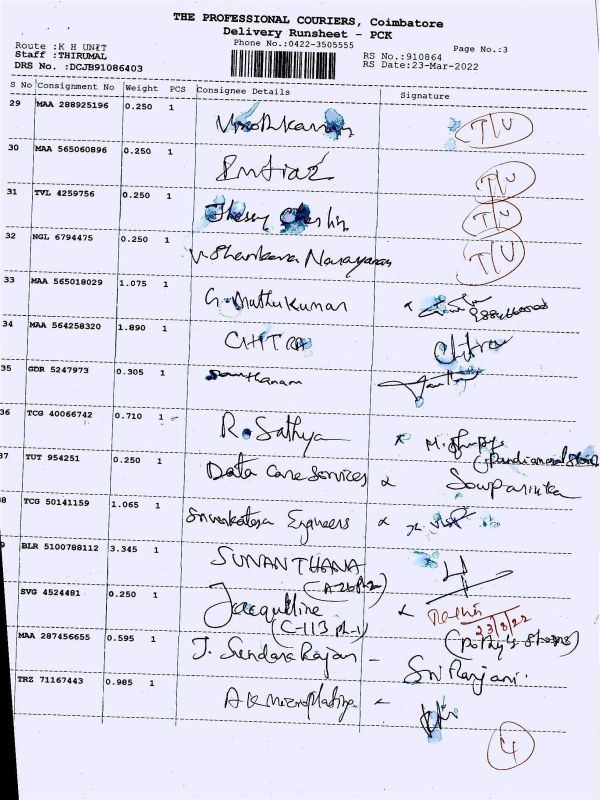 THE PROFESSIONAL COURIERS, Coimbatore
Delivery Runsheet - PCK
Phone No.:0422-3505555
Page No.:3
Route :K H UNIT
Staff :THIRUMAL
DRS No. :DCJB91086403
RS No.:910864
RS Date:23-Mar-2022
S No Consignment No Weight PCS Consignee Details Signature
29 MAA 288925196 0.250 1 T/U
30 MAA 565060896 0.250 1 Imtiaz T/U
31 TVL 4259756 0.250 1 T/U
32 NGL 6794475 0.250 1 V. Shankara Narayanan T/U
33 MAA 565018029 1.075 1 G. Muthukumar
34 MAA 564258320 1.890 1 CHITRA Chitra
35 GDR 5247973 0.305 1 Santhanam
36 TCG 40066742 0.710 1 R. Sathya
37 TUT 954251 0.250 1 Data Care Services Sowparnika
38 TCG 50141159 1.065 1 Srivenkatesa Engineers
9 BLR 5100788112 3.345 1 SUNANTHANA
(A-26 Ph-2)
SVG 4524481 0.250 1 Jacquiline
(C-113 Ph-1)
23/3/22
(Pothy's Stores)
MAA 287456655 0.595 1 J. Sundara Rajan - Sri Ranjani.
TRZ 71167443 0.985 1
4